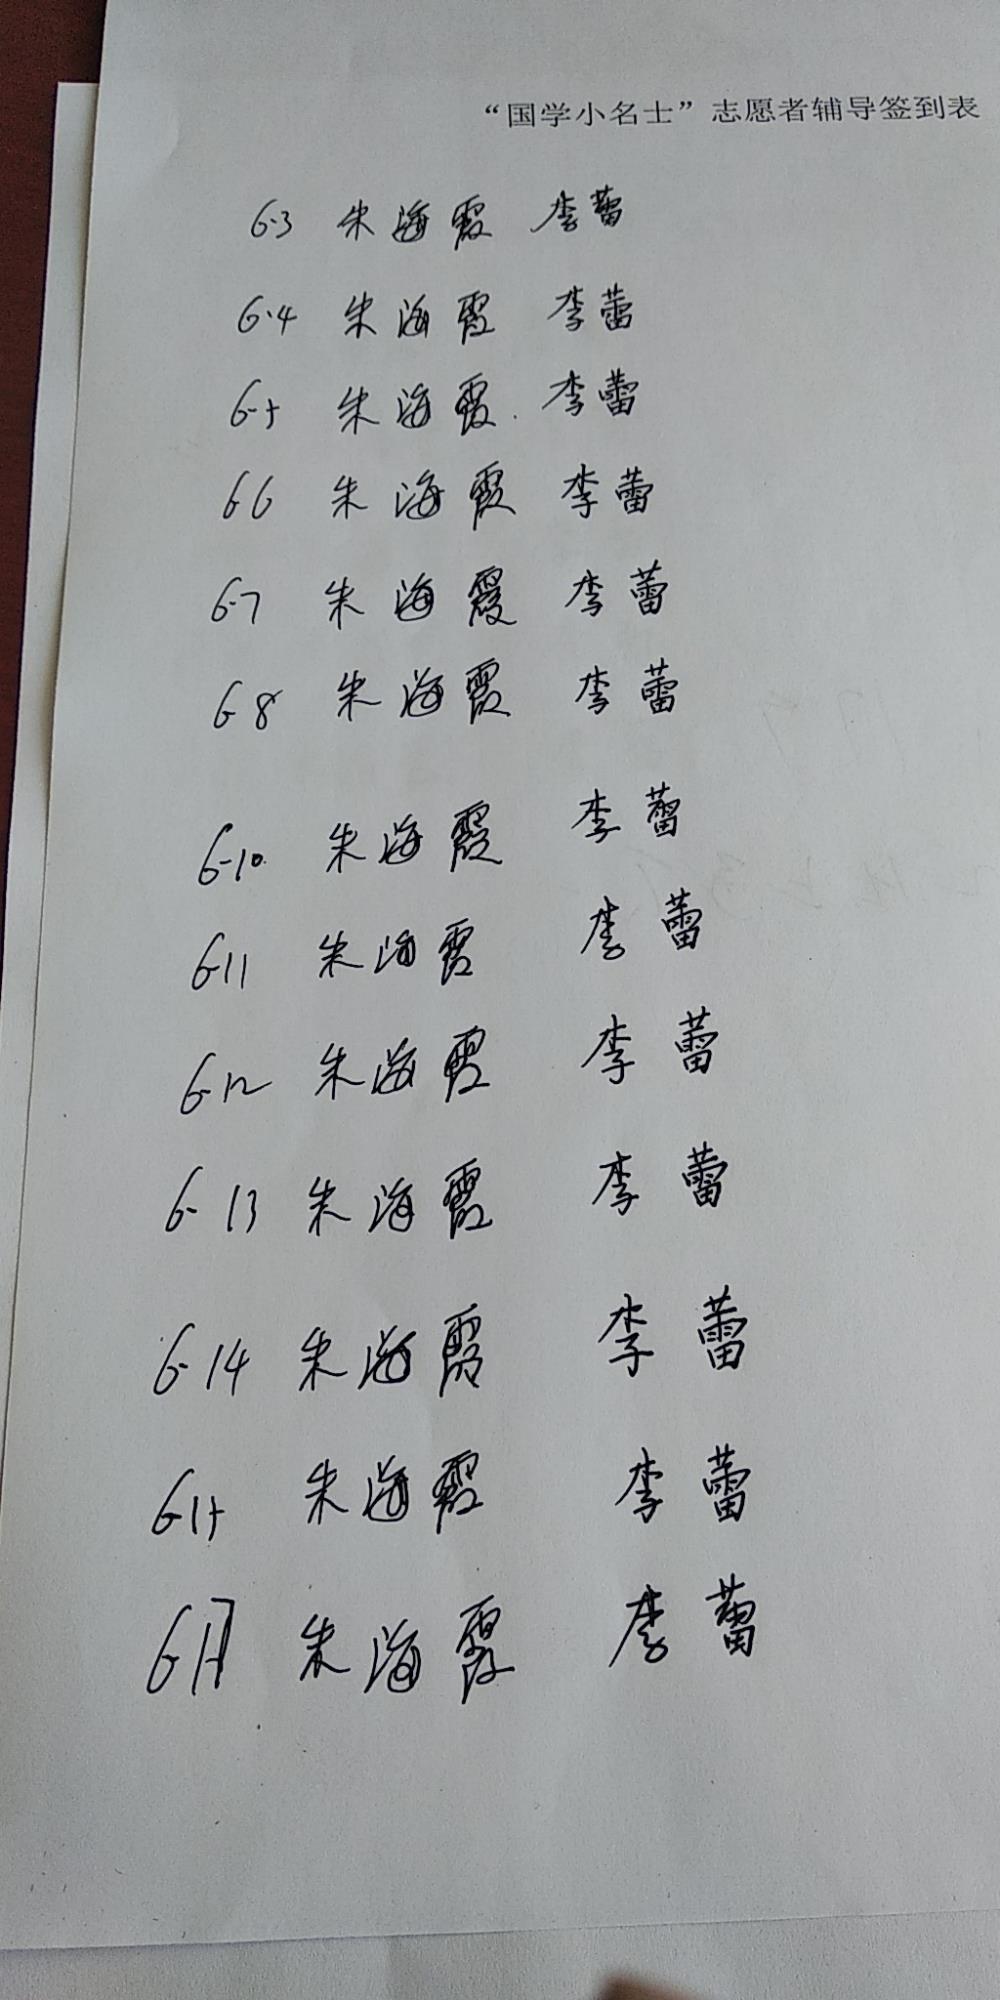 “国学小名士”志愿者辅导签到表
6.3 朱海霞 李蕾
6.4 朱海霞 李蕾
6.5 朱海霞 李蕾
6.6 朱海霞 李蕾
6.7 朱海霞 李蕾
6.8 朱海霞 李蕾
6.10 朱海霞 李蕾
6.11 朱海霞 李蕾
6.12 朱海霞 李蕾
6.13 朱海霞 李蕾
6.14 朱海霞 李蕾
6.15 朱海霞 李蕾
6.17 朱海霞 李蕾